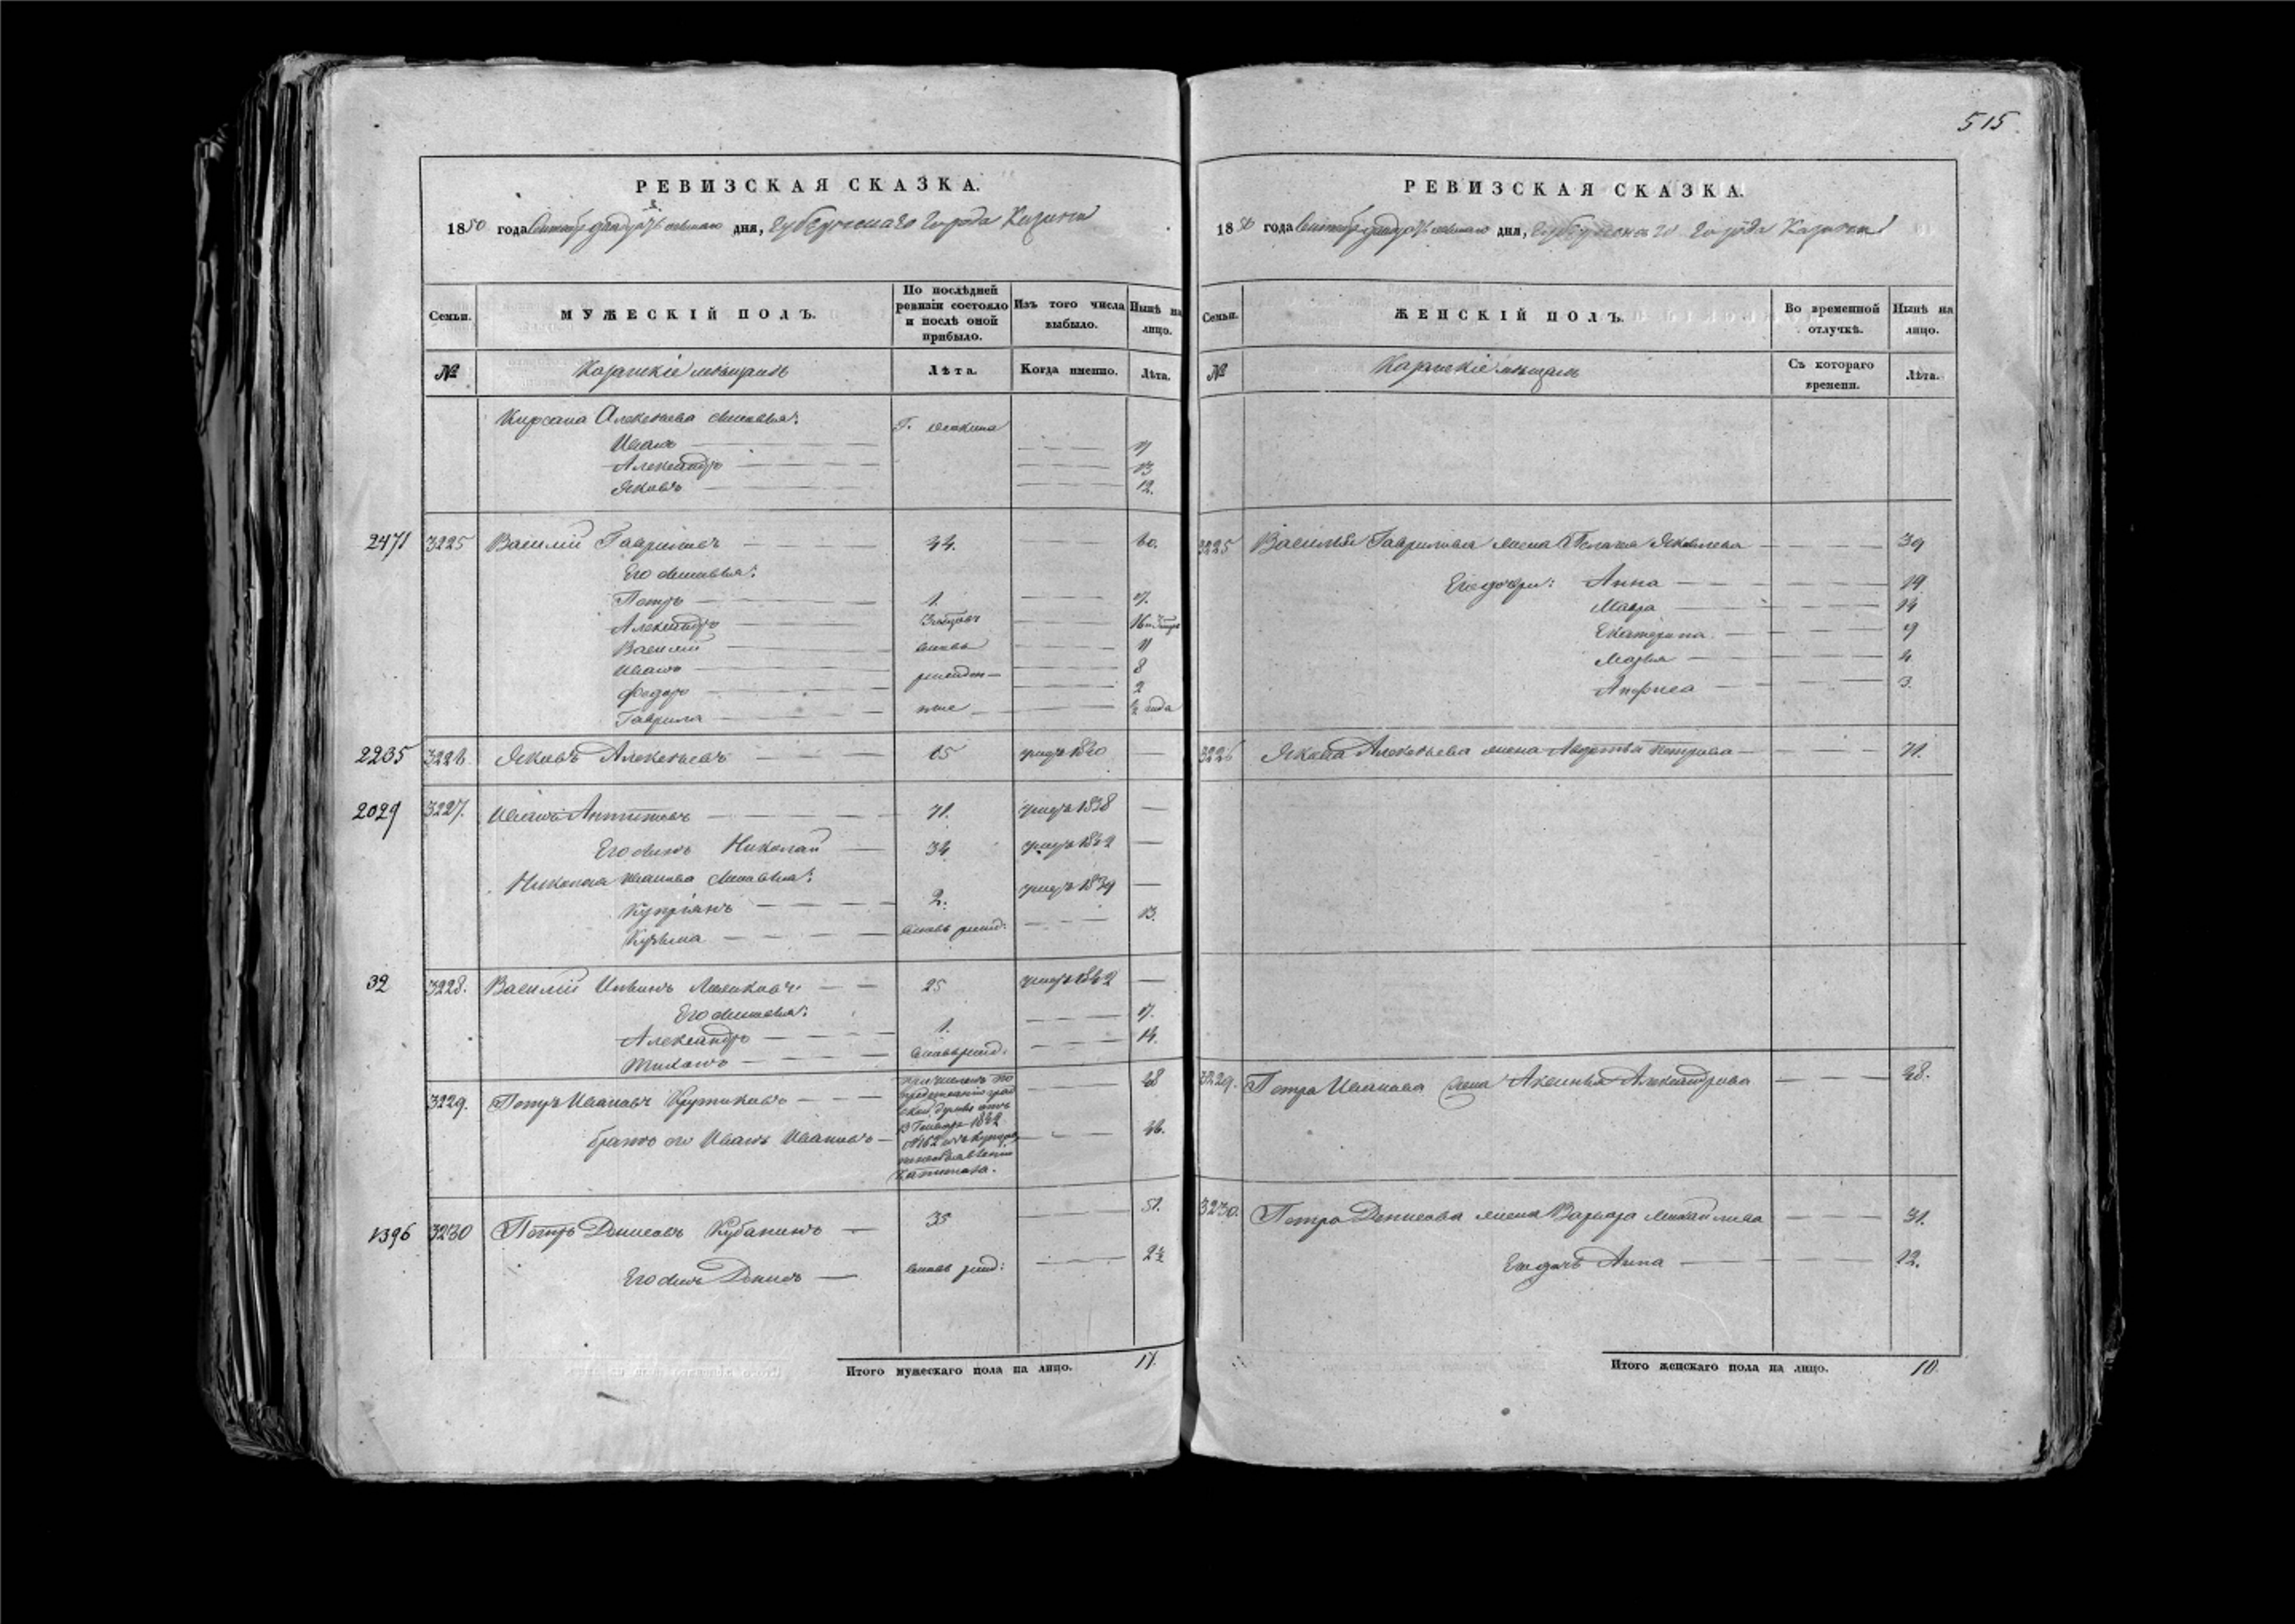 515
РЕВИЗСКАЯ СКАЗКА.
1850 года дня, Губернскаго города Казани
Семьи.
МУЖЕСКІЙ ПОЛЪ.
По послѣдней ревизіи состояло и послѣ оной прибыло.
Изъ того числа выбыло.
Нынѣ на лицо.
№
Казанскіе мѣщане
Лѣта.
Когда именно.
Лѣта.
Алексѣева сыновья:
Иванъ
Александръ 13
Яковъ 12.
2471 3225 Василій Гавриловъ 44. 60.
Его сыновья:
Петръ 1. 17.
Александръ
Василій вновь 11
Иванъ 8
Федоръ 2
Гаврила ½ года
2235 3226 Яковъ Алексѣевъ 65 умеръ 1840 —
2029 3227. Иванъ Антиповъ 71. умеръ 1838 —
Его сынъ Николай 34 умеръ 1842 —
Николая Иванова сыновья:
Купріянъ 2. умеръ 1839 —
Кузьма вновь рожд: 13.
32 3228. Василій 25 умеръ 1842 —
Его сыновья:
Александръ 1. 17.
вновь рожд. 14.
3229. Петръ Ивановъ Крупиковъ 48
братъ его Иванъ Ивановъ 46.
13 Генваря 1842
№162
капитала.
1396 3230 Петръ Денисовъ Кубанинъ 35 51.
Его сынъ Денисъ вновь рожд: 2½
Итого мужескаго пола на лицо. 17.
РЕВИЗСКАЯ СКАЗКА.
1850 года дня, Губернскаго города Казани
Семьи.
ЖЕНСКІЙ ПОЛЪ.
Во временной отлучкѣ.
Нынѣ на лицо.
№
Казанскіе мѣщане
Съ котораго времени.
Лѣта.
3225 Василья Гаврилова жена Пелагея Яковлева 39
Его дочери: Анна 19
Мавра 14
Екатерина 9
Марья 4
Анфиса 3.
3226 Якова Алексѣева жена Авдотья Петрова 71.
3229. Петра Иванова жена Аксинья Александрова 48.
3230. Петра Денисова жена Варвара Михайлова 31.
Его дочь Анна 12.
Итого женскаго пола на лицо. 10.